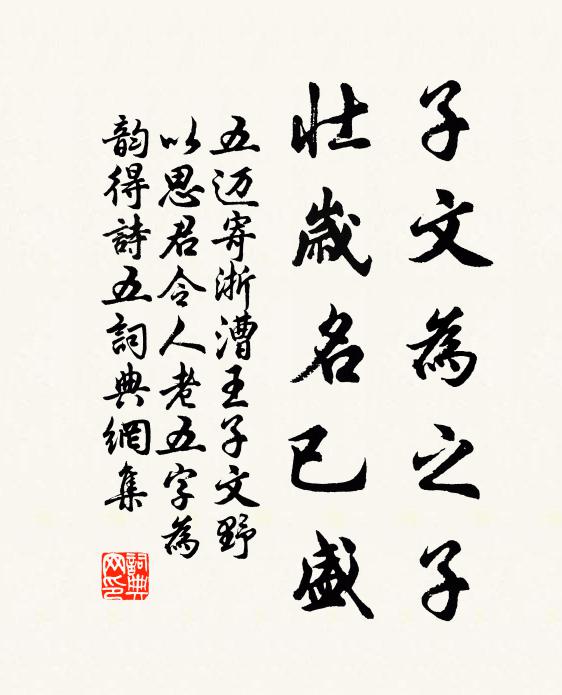 子文為之子
壯歲名已盛
五迈寄浙漕王子文野
以思君令人老五字為
韵得詩五詞典網集
詞典
网印